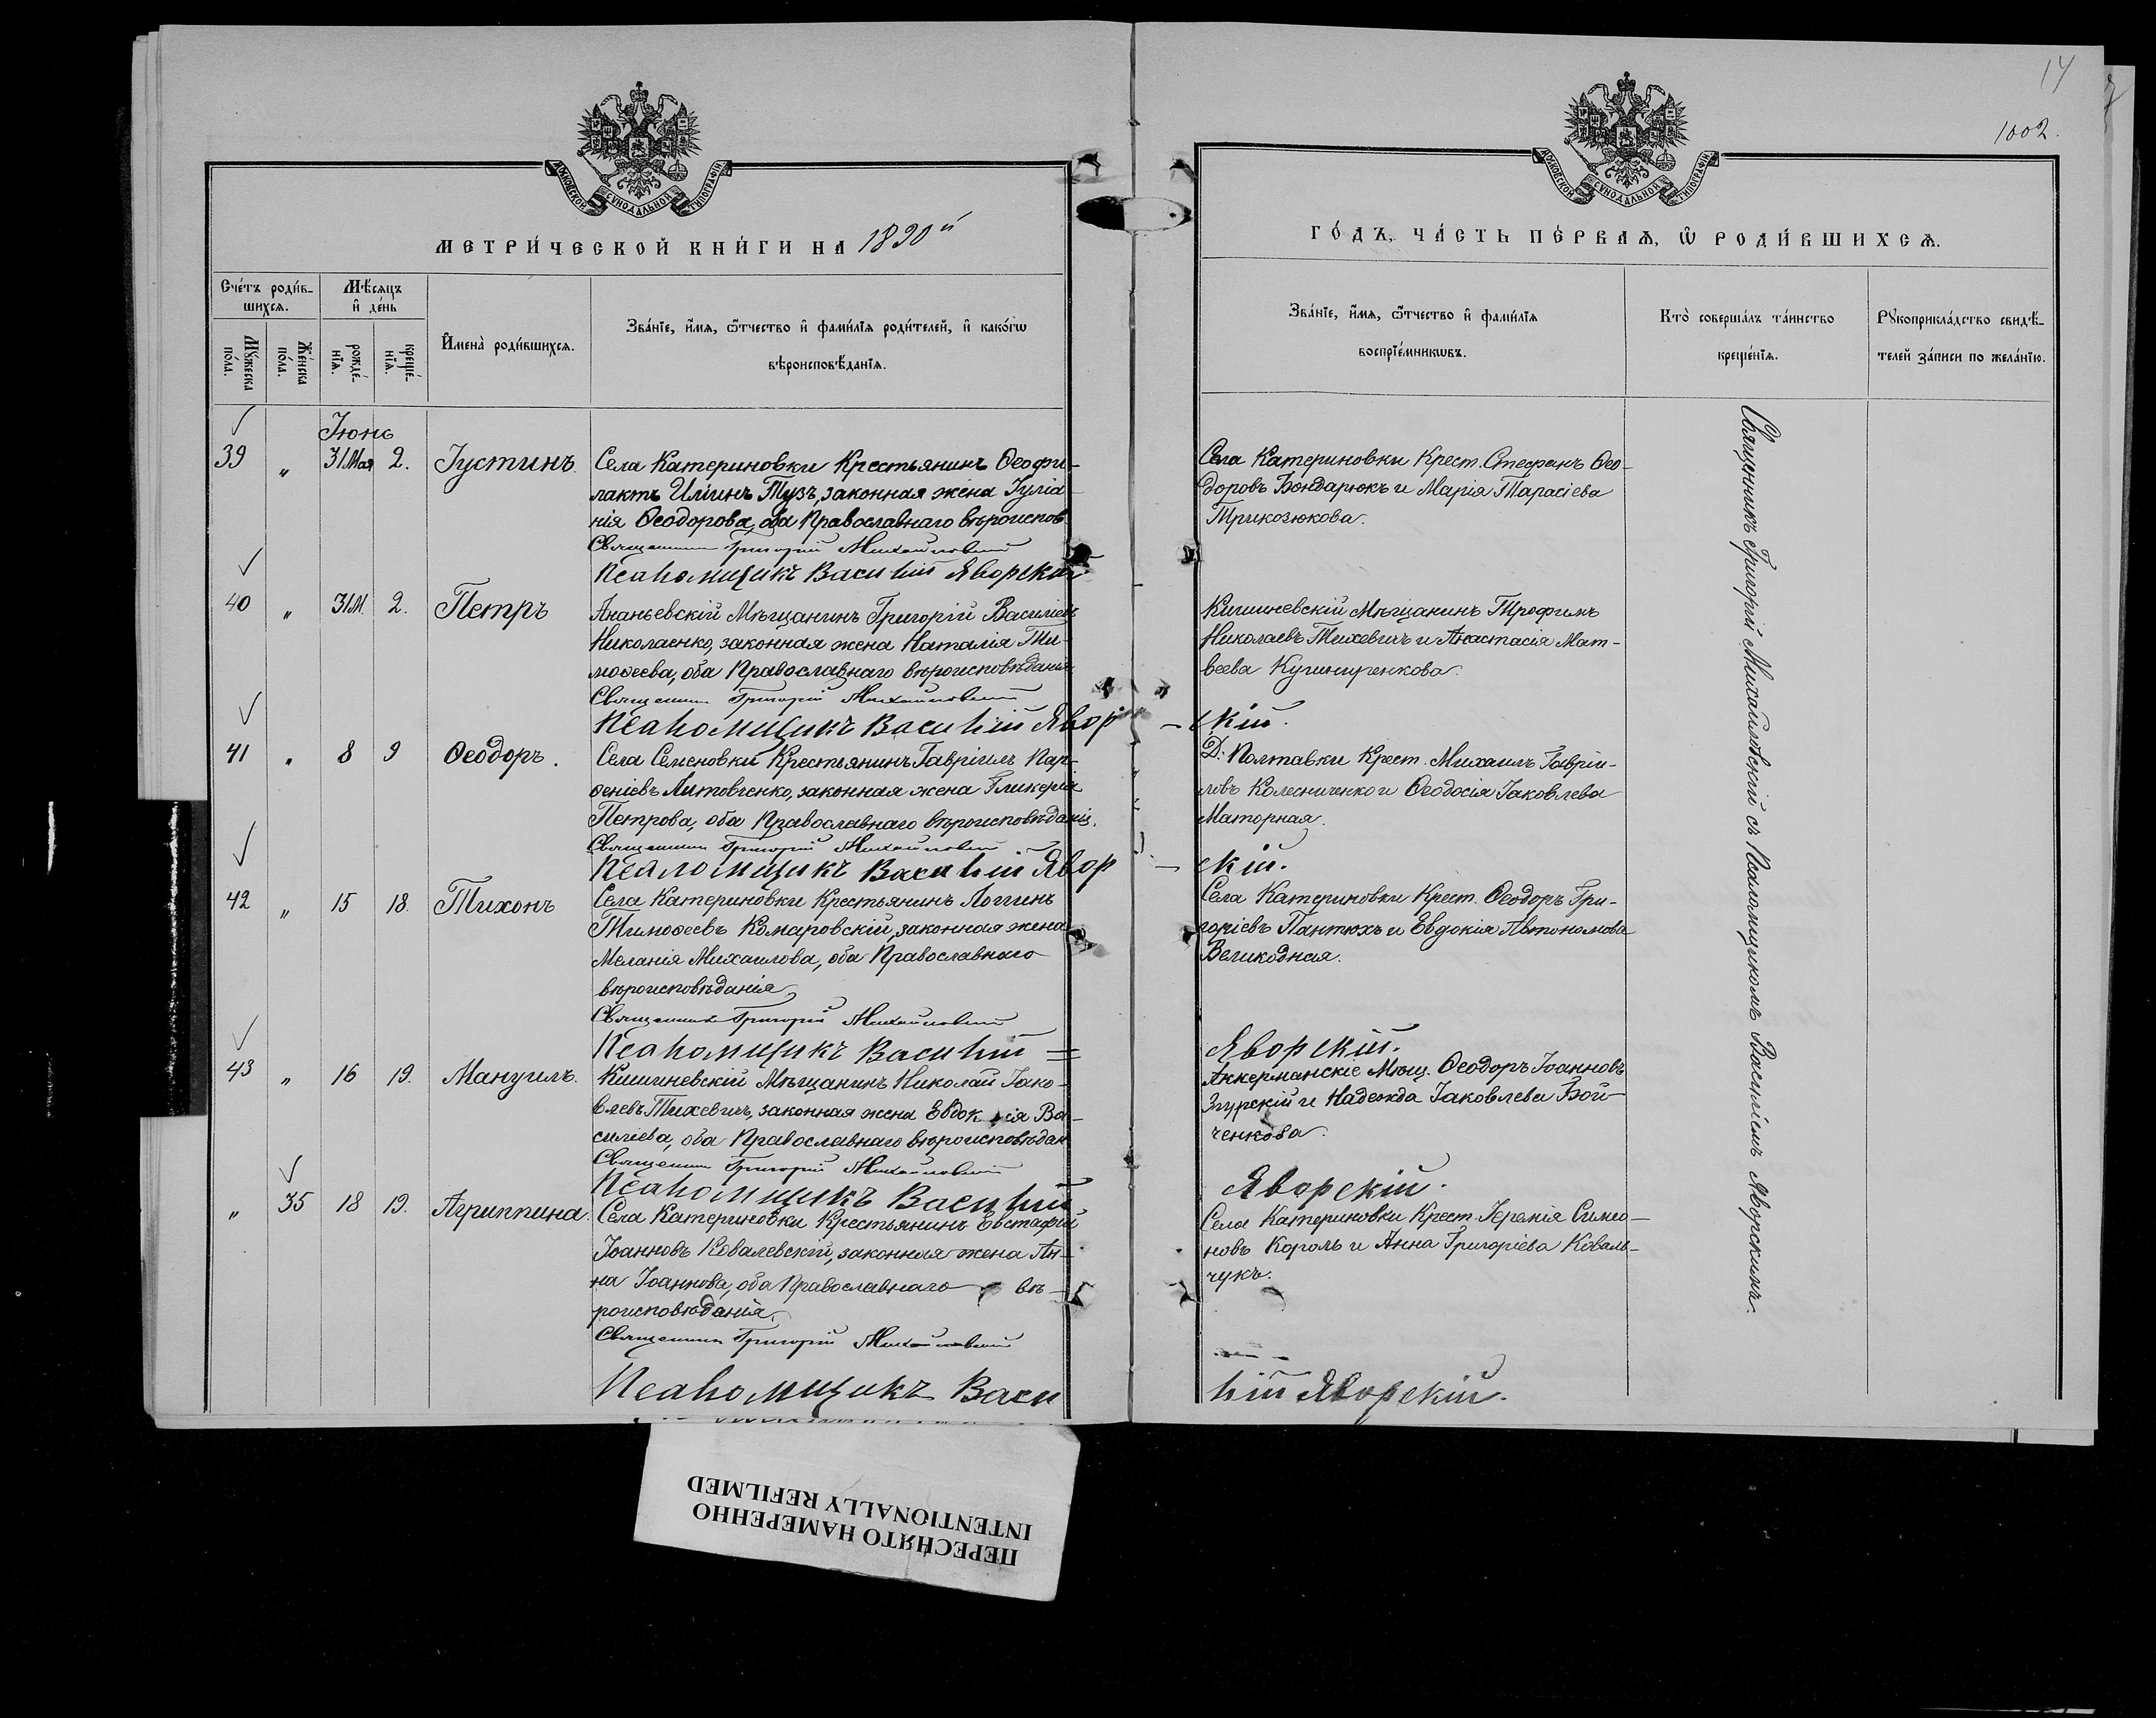 14
1002.
МОСКОВСКОЙ СѴНОДАЛЬНОЙ ТИПОГРАФІИ
МЕТРИ́ЧЕСКОЙ КНИ́ГИ НА 1890й
Сче́тъ роди́в-
шихсѧ.
Мѣ́сѧцъ
и҆ де́нь
Мꙋ́жеска
по́ла.
Же́нска
по́ла.
рожде́-
нїѧ.
креще́-
нїѧ.
И҆мена̀ роди́вшихсѧ.
Зва́нїе, и҆́мѧ, ѿ́чество и҆ фами́лїѧ роди́телей, и҆ како́гѡ
вѣроисповѣ́данїѧ.
Іюнь
39 " 31 Мая 2. Іустинъ.
Села Катериновки Крестьянинъ Ѳеофи-
лактъ Иліинъ Тузъ, законная жена Іуліа-
нія Ѳеодорова, оба Православнаго вѣроиспов.
Священникъ Григорій Михайловскій
Псаломщикъ Василій Яворскій
40 " 31 М. 2. Петръ
Ананьевскій Мѣщанинъ Григорій Василіевъ
Николаенко, законная жена Наталія Ти-
моѳеева, оба Православнаго вѣроисповѣданія
Священникъ Григорій Михайловскій
Псаломщикъ Василій Явор-
41 " 8 9 Ѳеодоръ.
Села Семеновки Крестьянинъ Гавріилъ Пар-
ѳеніевъ Литовченко, законная жена Гликерія
Петрова, оба Православнаго вѣроисповѣданія.
Священникъ Григорій Михайловскій
Псаломщикъ Василій Явор
42 " 15 18. Тихонъ
Села Катериновки Крестьянинъ Логгинъ
Тимоѳеевъ Комаровскій, законная жена
Меланія Михаилова, оба Православнаго
вѣроисповѣданія
Священникъ Григорій Михайловскій
Псаломщикъ Василій =
43 " 16 19. Мануилъ.
Кишиневскій Мѣщанинъ Николай Іако-
влевъ Тихевичъ, законная жена Евдокія Ва-
силіева, оба Православнаго вѣроисповѣдан.
Священникъ Григорій Михайловскій
Псаломщикъ Василій
" 35 18 19. Агриппина.
Села Катериновки Крестьянинъ Евстафій
Іоанновъ Ковалевскій, законная жена Ан-
на Іоаннова, оба Православнаго вѣ-
роисповѣданія.
Священникъ Григорій Михайловскій
Псаломщикъ Васи
МОСКОВСКОЙ СѴНОДАЛЬНОЙ ТИПОГРАФІИ
ГО́ДЪ, ЧА́СТЬ ПЕ́РВАѦ, Ѡ҆ РОДИ́ВШИХСѦ.
Зва́нїе, и҆́мѧ, ѿ́чество и҆ фами́лїѧ
воспрїе́мникѡвъ.
Кто̀ соверша́лъ та́инство
креще́нїѧ.
Рꙋкоприкла́дство свидѣ́-
телей за́писи по жела́нїю.
Села Катериновки Крест. Стефанъ Ѳео-
доровъ Бондарюкъ и Марія Тарасіева
Трикозюкова.
Кишиневскій Мѣщанинъ Трофимъ
Николаевъ Тихевичъ и Анастасія Мат-
веева Кушниренкова.
-скій.
Д. Полтавки Крест. Михаилъ Гавріи-
ловъ Колесниченко и Ѳеодосія Іаковлева
Маторная.
скій.
Села Катериновки Крест. Ѳеодоръ Гри-
горіевъ Пантюхъ и Евдокія Автономова
Великодная.
Яворскій.
Аккерманскіе Мѣщ. Ѳеодоръ Іоанновъ
Згурскій и Надежда Іаковлева Бой-
ченкова.
Яворскій.
Села Катериновки Крест. Іеремія Симео-
новъ Король и Анна Григоріева Коваль-
чукъ.
лій Яворскій.
Священникъ Григорій Михайловскій съ Псаломщикомъ Василіемъ Яворскимъ.
ПЕРЕСНЯТО НАМЕРЕННО
INTENTIONALLY REFILMED